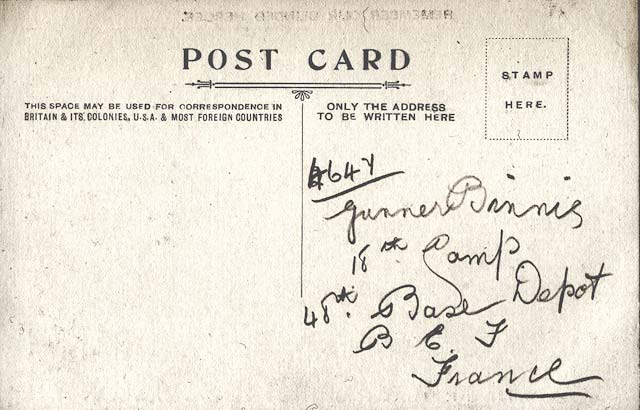 POST CARD
THIS SPACE MAY BE USED FOR CORRESPONDENCE IN
BRITAIN & ITS COLONIES, U.S.A. & MOST FOREIGN COUNTRIES
ONLY THE ADDRESS
TO BE WRITTEN HERE
STAMP
HERE.
Gunner Binnis
18th Camp
48th. Base Depot
B E F
France